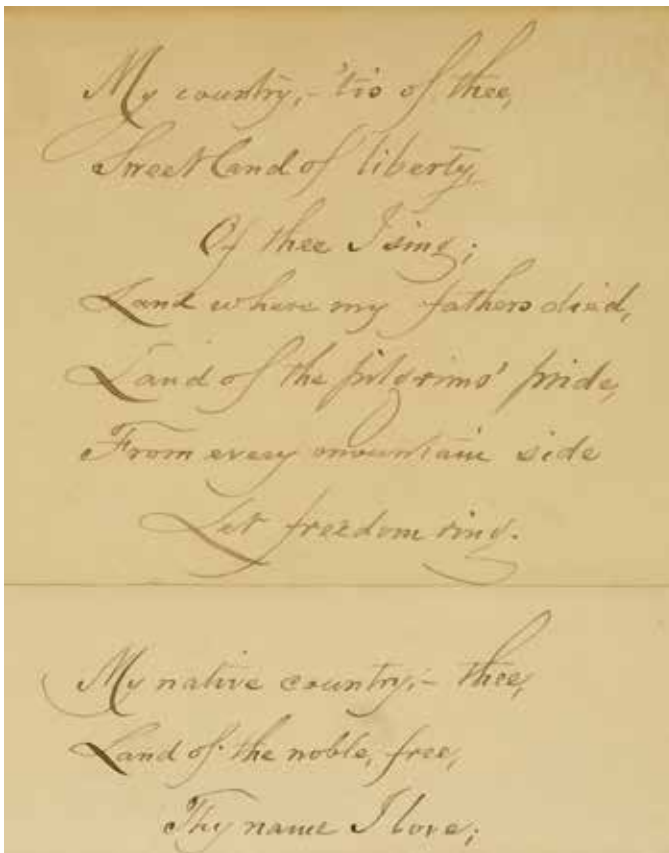 My country, - 'tis of thee,
Sweet land of liberty,
Of thee I sing;
Land where my fathers died,
Land of the pilgrims' pride,
From every mountain side
Let freedom ring.
My native country, - thee,
Land of the noble, free,
Thy name I love;